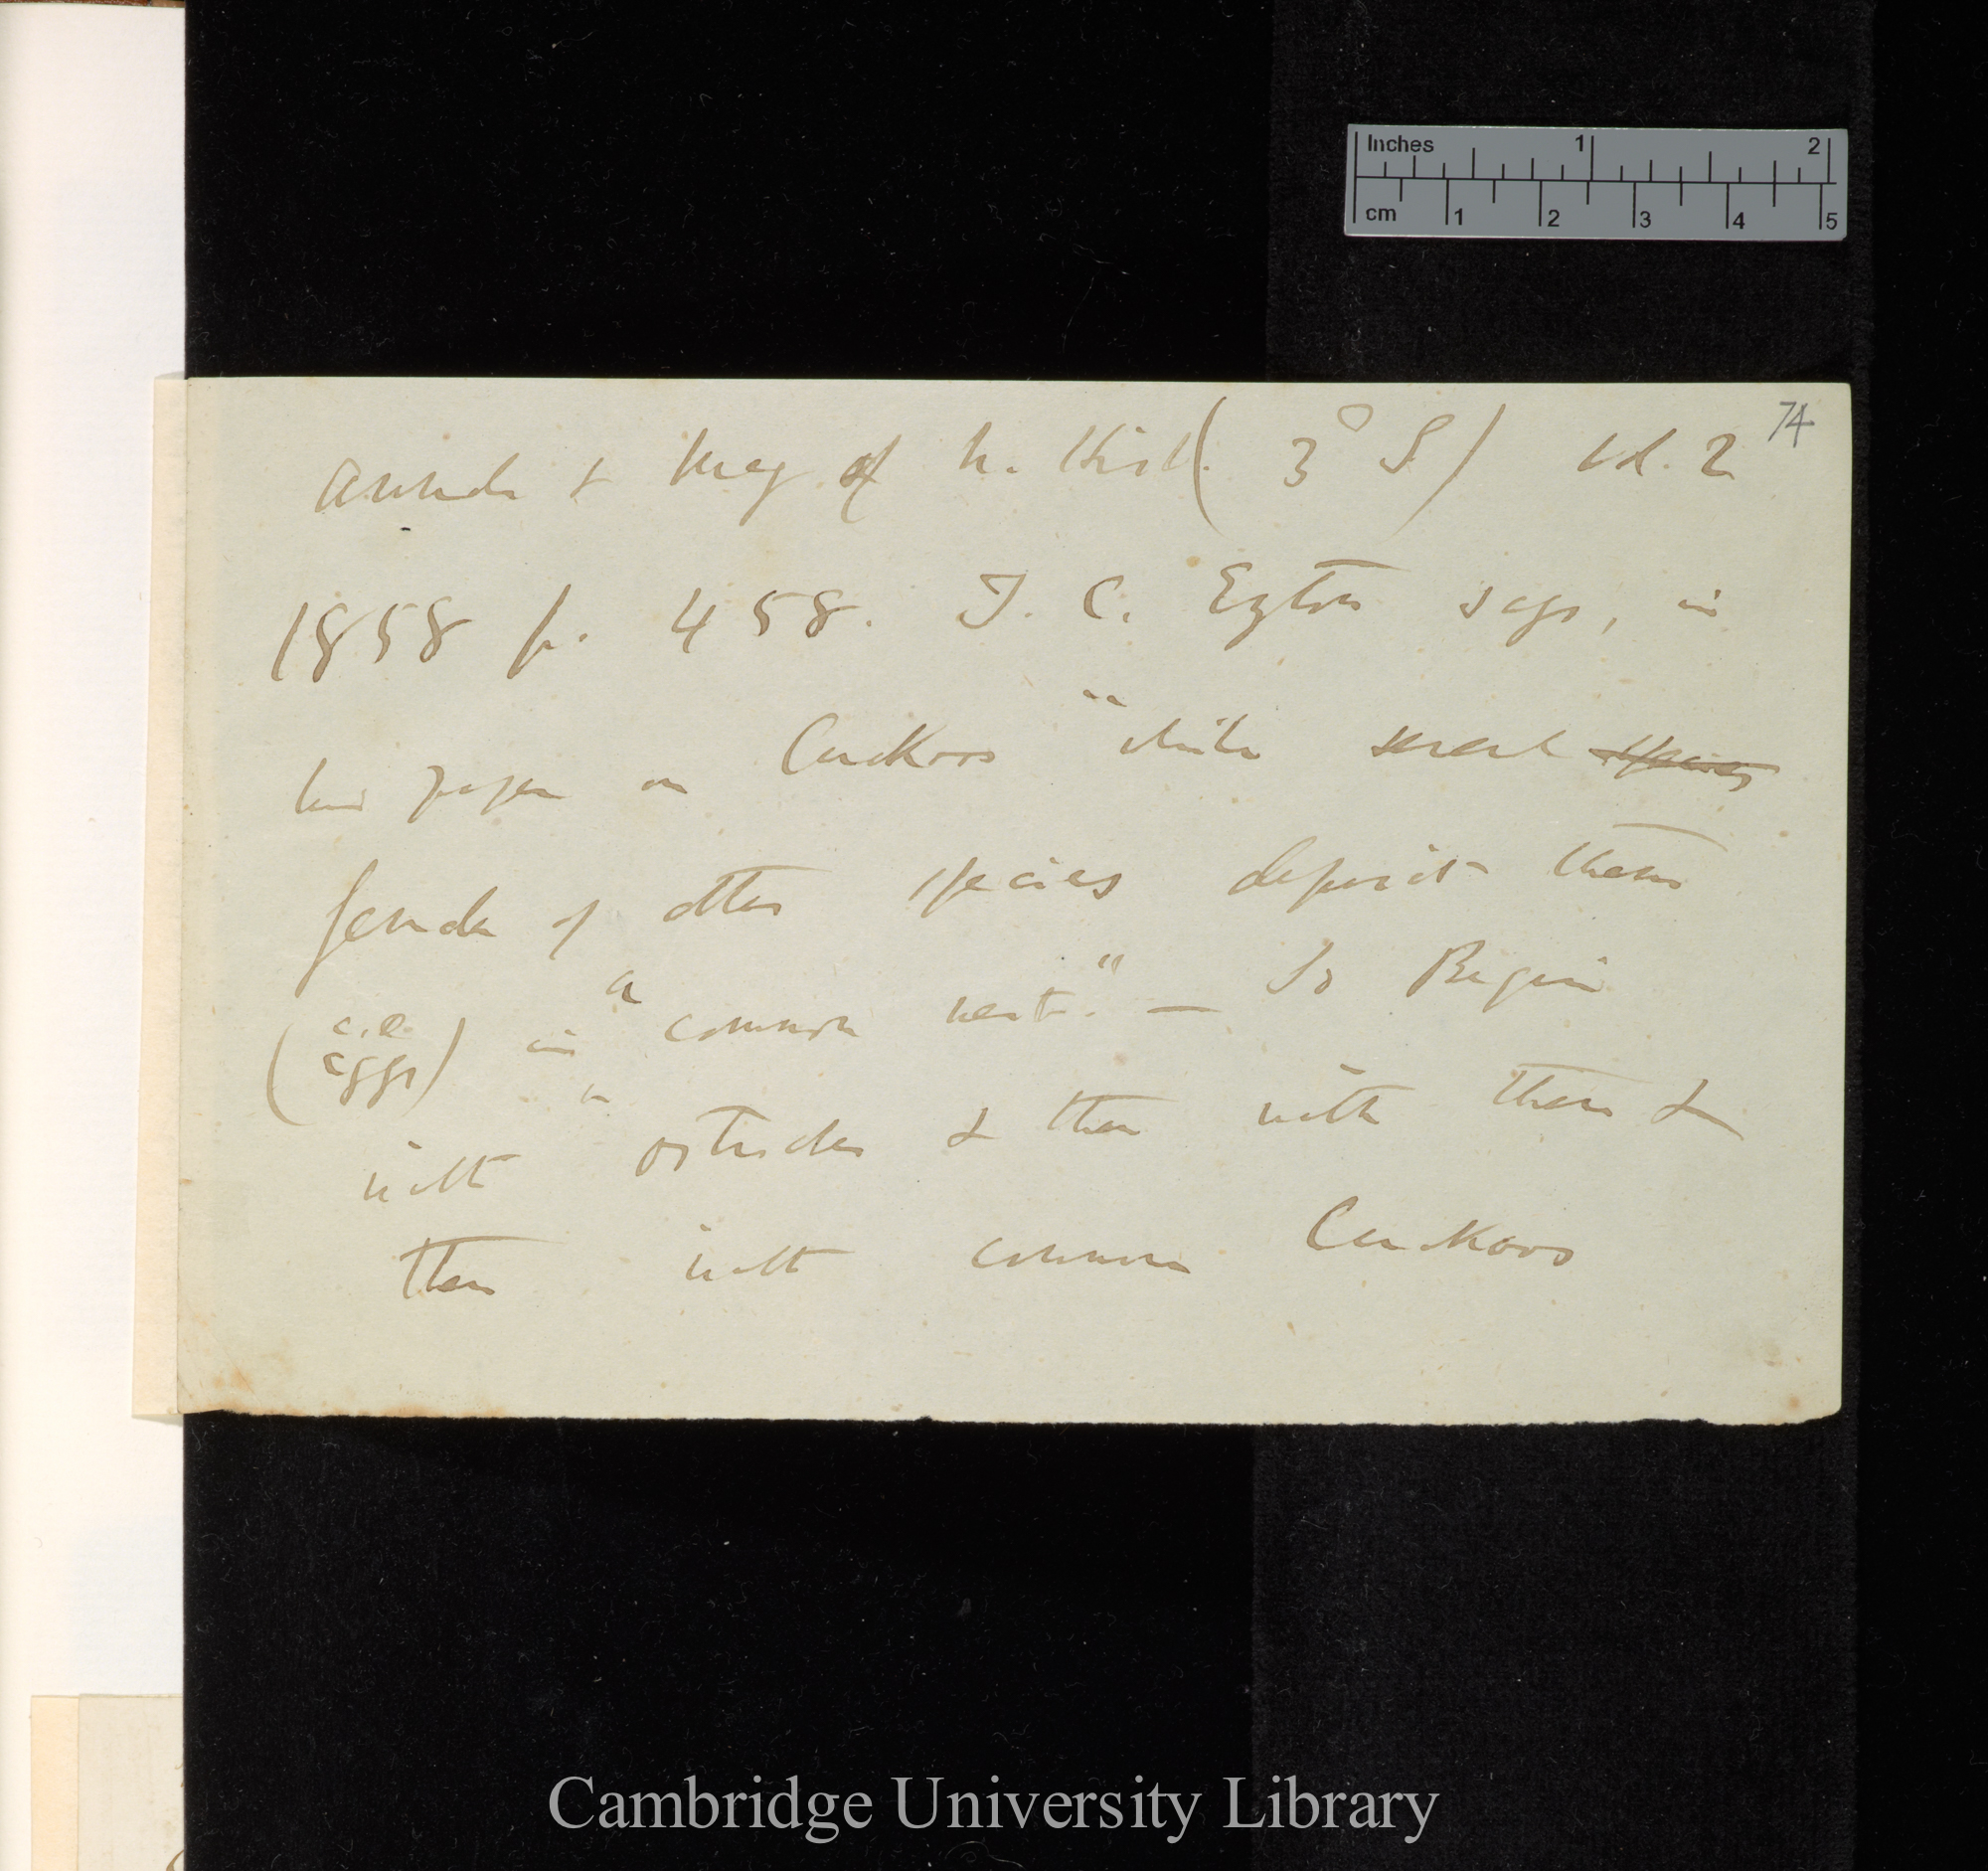 Inches 1 2
cm 1 2 3 4 5
74
Annals & Mag of N. Hist. (3° S) vol. 2
1858 p. 458. T. C. Eyton says, in
his paper on Cuckoos "while several species
females of other species deposit them
(i.e. eggs) in a common nest." — To Begin
with ostriches & then with them &
then with common Cuckoos
Cambridge University Library